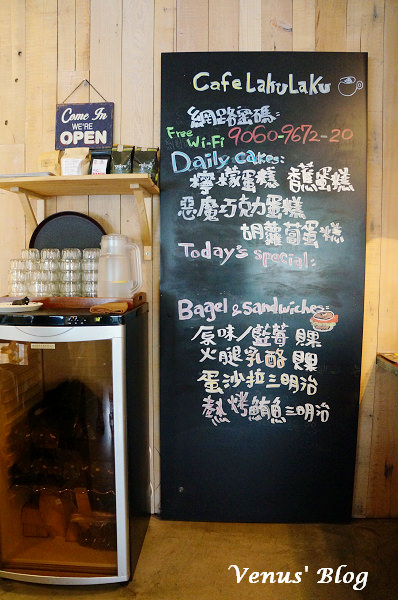 Cafe LakuLaku
Come In
WE'RE
OPEN
網路密碼:
Free Wi-Fi 9060-9672-20
Daily cakes:
檸檬蛋糕 香蕉蛋糕
惡魔巧克力蛋糕
胡蘿蔔蛋糕
Today's special:
Bagel & sandwiches:
原味/藍莓 貝果
火腿乳酪 貝果
蛋沙拉三明治
熱烤鮪魚三明治
Venus' Blog